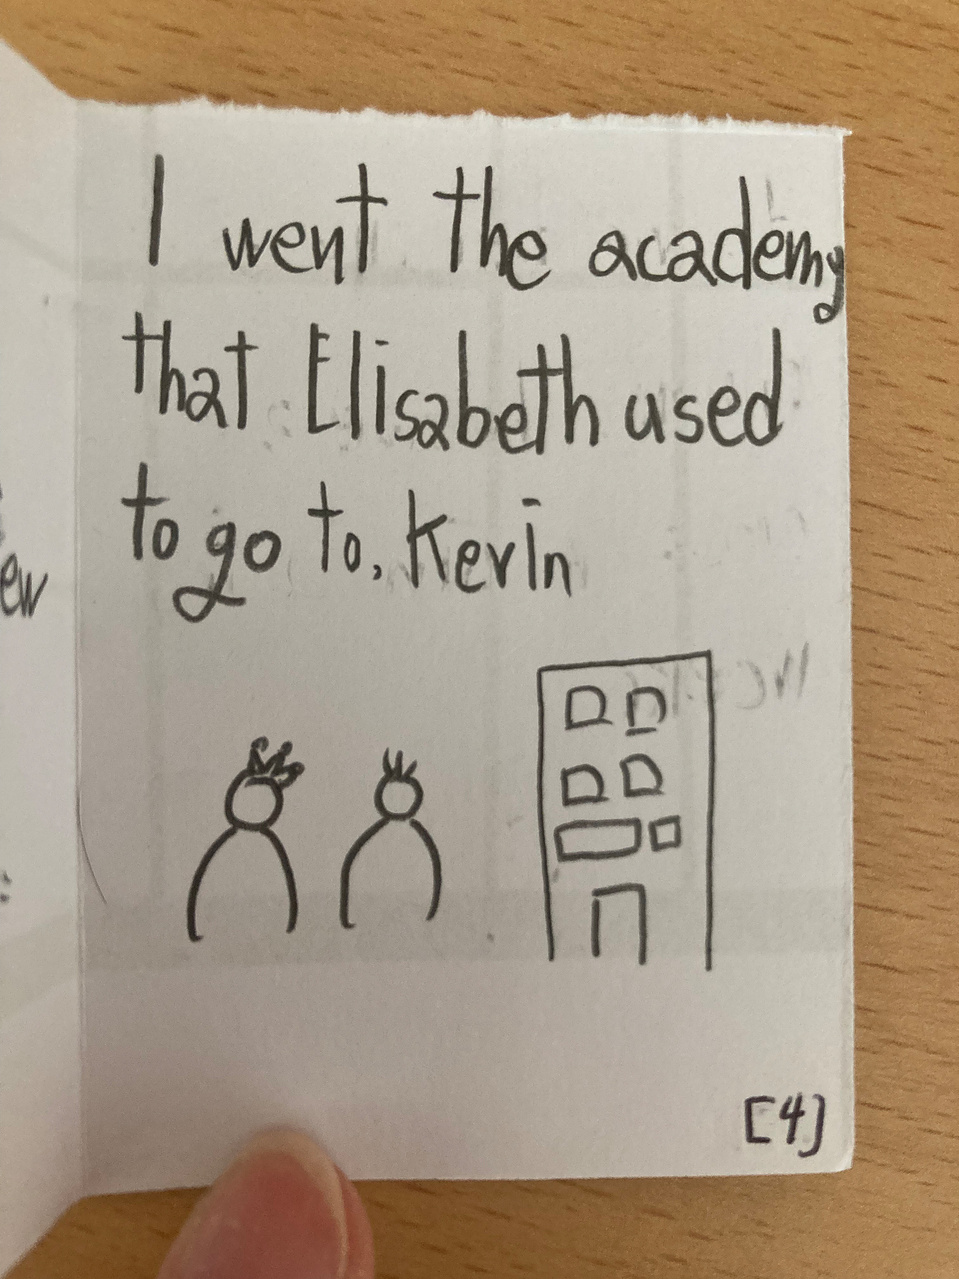 I went the academy
that Elisabeth used
to go to, Kevin
ew
[4]